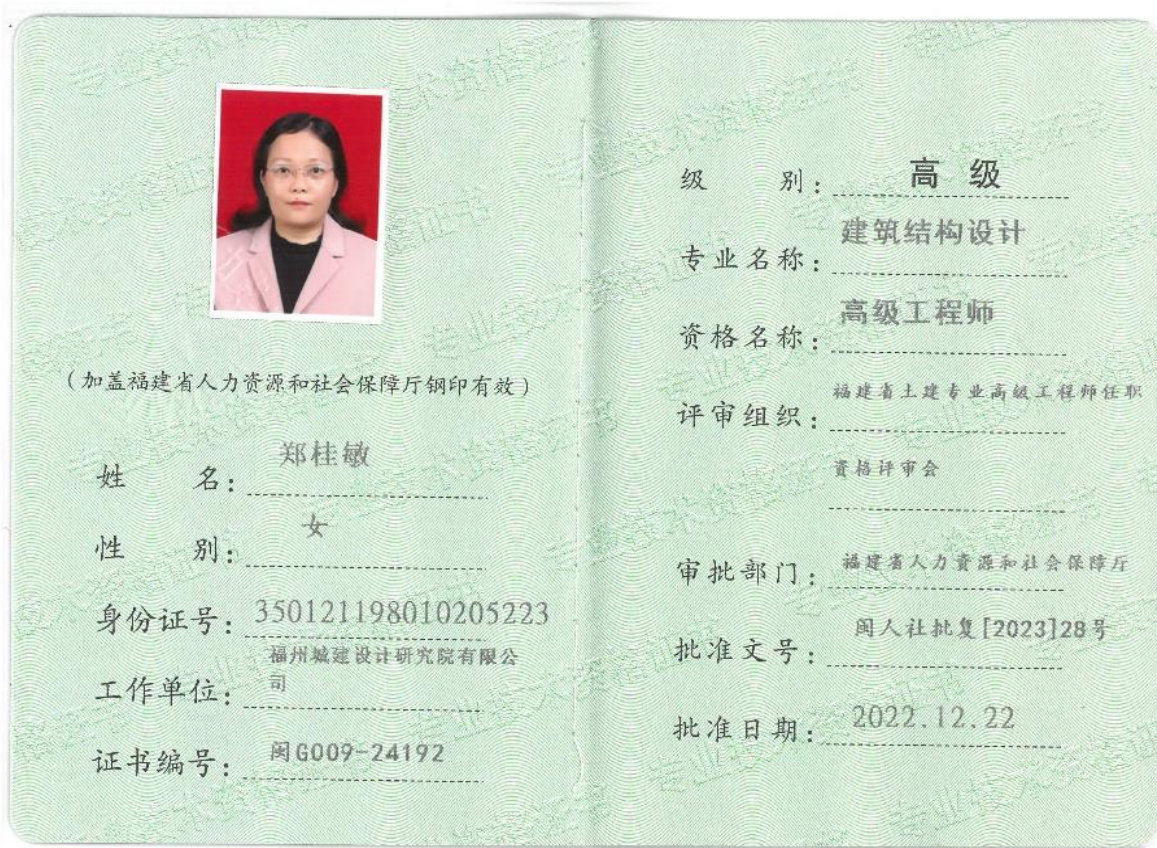 (加盖福建省人力资源和社会保障厅钢印有效)
姓 名: 郑桂敏
性 别: 女
身份证号: 350121198010205223
工作单位: 福州城建设计研究院有限公
司
证书编号: 闽G009-24192
级 别: 高 级
专业名称: 建筑结构设计
资格名称: 高级工程师
评审组织: 福建省土建专业高级工程师任职
资格评审会
审批部门: 福建省人力资源和社会保障厅
批准文号: 闽人社批复[2023]28号
批准日期: 2022.12.22